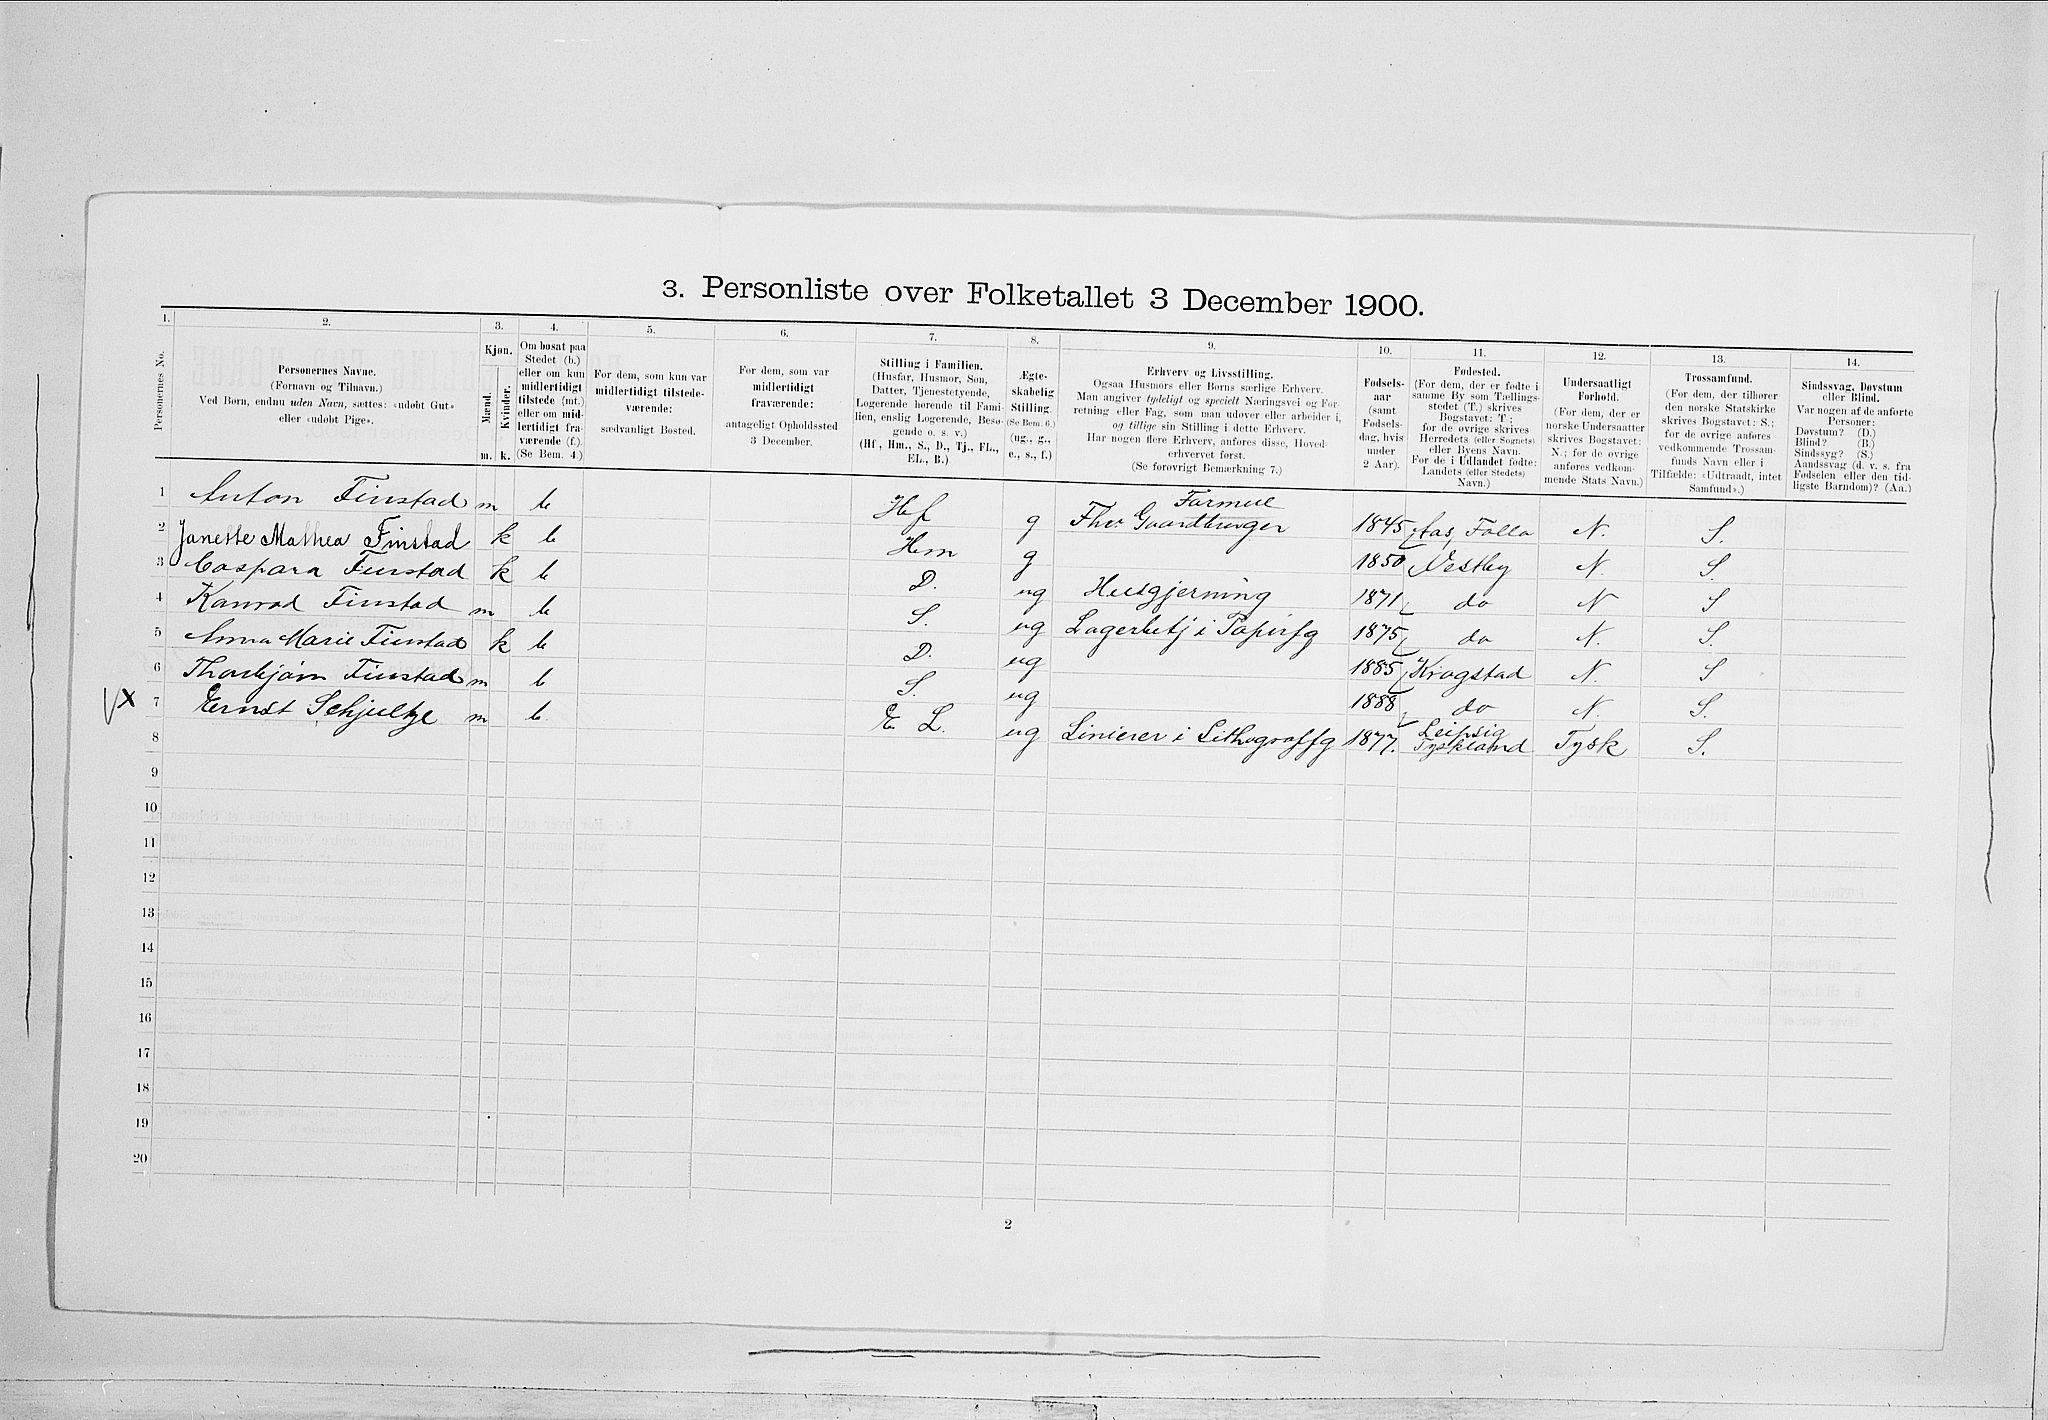 3. Personliste over Folketallet 3 December 1900.
1. 2. 3. 4. 5. 6. 7. 8. 9. 10. 11. 12. 13. 14.
Personernes No.
Personernes Navne.
(Fornavn og Tilnavn.)
Ved Børn, endnu uden Navn, sættes: «udøbt Gut»
eller «udøbt Pige».
Kjøn.
Mænd. Kvinder.
m. k.
Om bosat paa
Stedet (b.)
eller om kun
midlertidigt
tilstede (mt.)
eller om mid-
lertidigt fra-
værende (f.).
(Se Bem. 4.)
For dem, som kun var
midlertidigt tilstede-
værende:
sædvanligt Bosted.
For dem, som var
midlertidigt
fraværende:
antageligt Opholdssted
3 December.
Stilling i Familien.
(Husfar, Husmor, Søn,
Datter, Tjenestetyende,
Logerende hørende til Fami-
lien, enslig Logerende, Besø-
gende o. s. v.)
(Hf., Hm., S., D., Tj., FL.,
EL., B.)
Ægte-
skabelig
Stilling.
(Se Bem. 6.)
(ug., g.,
e., s., f.)
Erhverv og Livsstilling.
Ogsaa Husmors eller Børns særlige Erhverv.
Man angiver tydeligt og specielt Næringsvei og For-
retning eller Fag, som man udøver eller arbeider i,
og tillige sin Stilling i dette Erhverv.
Har nogen flere Erhverv, anføres disse, Hoved-
erhvervet først.
(Se forøvrigt Bemærkning 7.)
Fødsels-
aar
(samt
Fødsels-
dag, hvis
under
2 Aar).
Fødested.
(For dem, der er fødte i
samme By som Tællings-
stedet (T.) skrives
Bogstavet: T;
for de øvrige skrives
Herredets (eller Sognets)
eller Byens Navn.
For de i Udlandet fødte:
Landets (eller Stedets)
Navn.)
Undersaatligt
Forhold.
(For dem, der er
norske Undersaatter
skrives Bogstavet:
N.; for de øvrige
anføres vedkom-
mende Stats Navn.)
Trossamfund.
(For dem, der tilhører
den norske Statskirke
skrives Bogstavet: S.;
for de øvrige anføres
vedkommende Trossam-
funds Navn eller i
Tilfælde: «Udtraadt, intet
Samfund».)
Sindssvag, Døvstum
eller Blind.
Var nogen af de anførte
Personer:
Døvstum? (D.)
Blind? (B.)
Sindssyg? (S.)
Aandssvag (d. v. s. fra
Fødselen eller den tid-
ligste Barndom)? (Aa.)
1 Anton Finstad m b Hf g Gaardbruger 1845 Aas, Follo N. S.
2 Janette Mathea Finstad k b Hm g 1850 Vestby N. S.
3 Caspara Finstad k b D. ug Husgjerning 1871 do N S
4 Konrad Finstad m b S. ug Lagerbetj i Papirfg 1875 do N. S.
5 Anna Marie Finstad k b D. ug 1885 Krogstad N. S
6 Thorbjørn Finstad m b S. ug 1888 do N. S.
x 7 Ernst Schjultze m b. E. L. ug Linierer i Lithograffg 1877. Leipsig
Tyskland Tysk S.
8
9
10
11
12
13
14
15
16
17
18
19
20
2